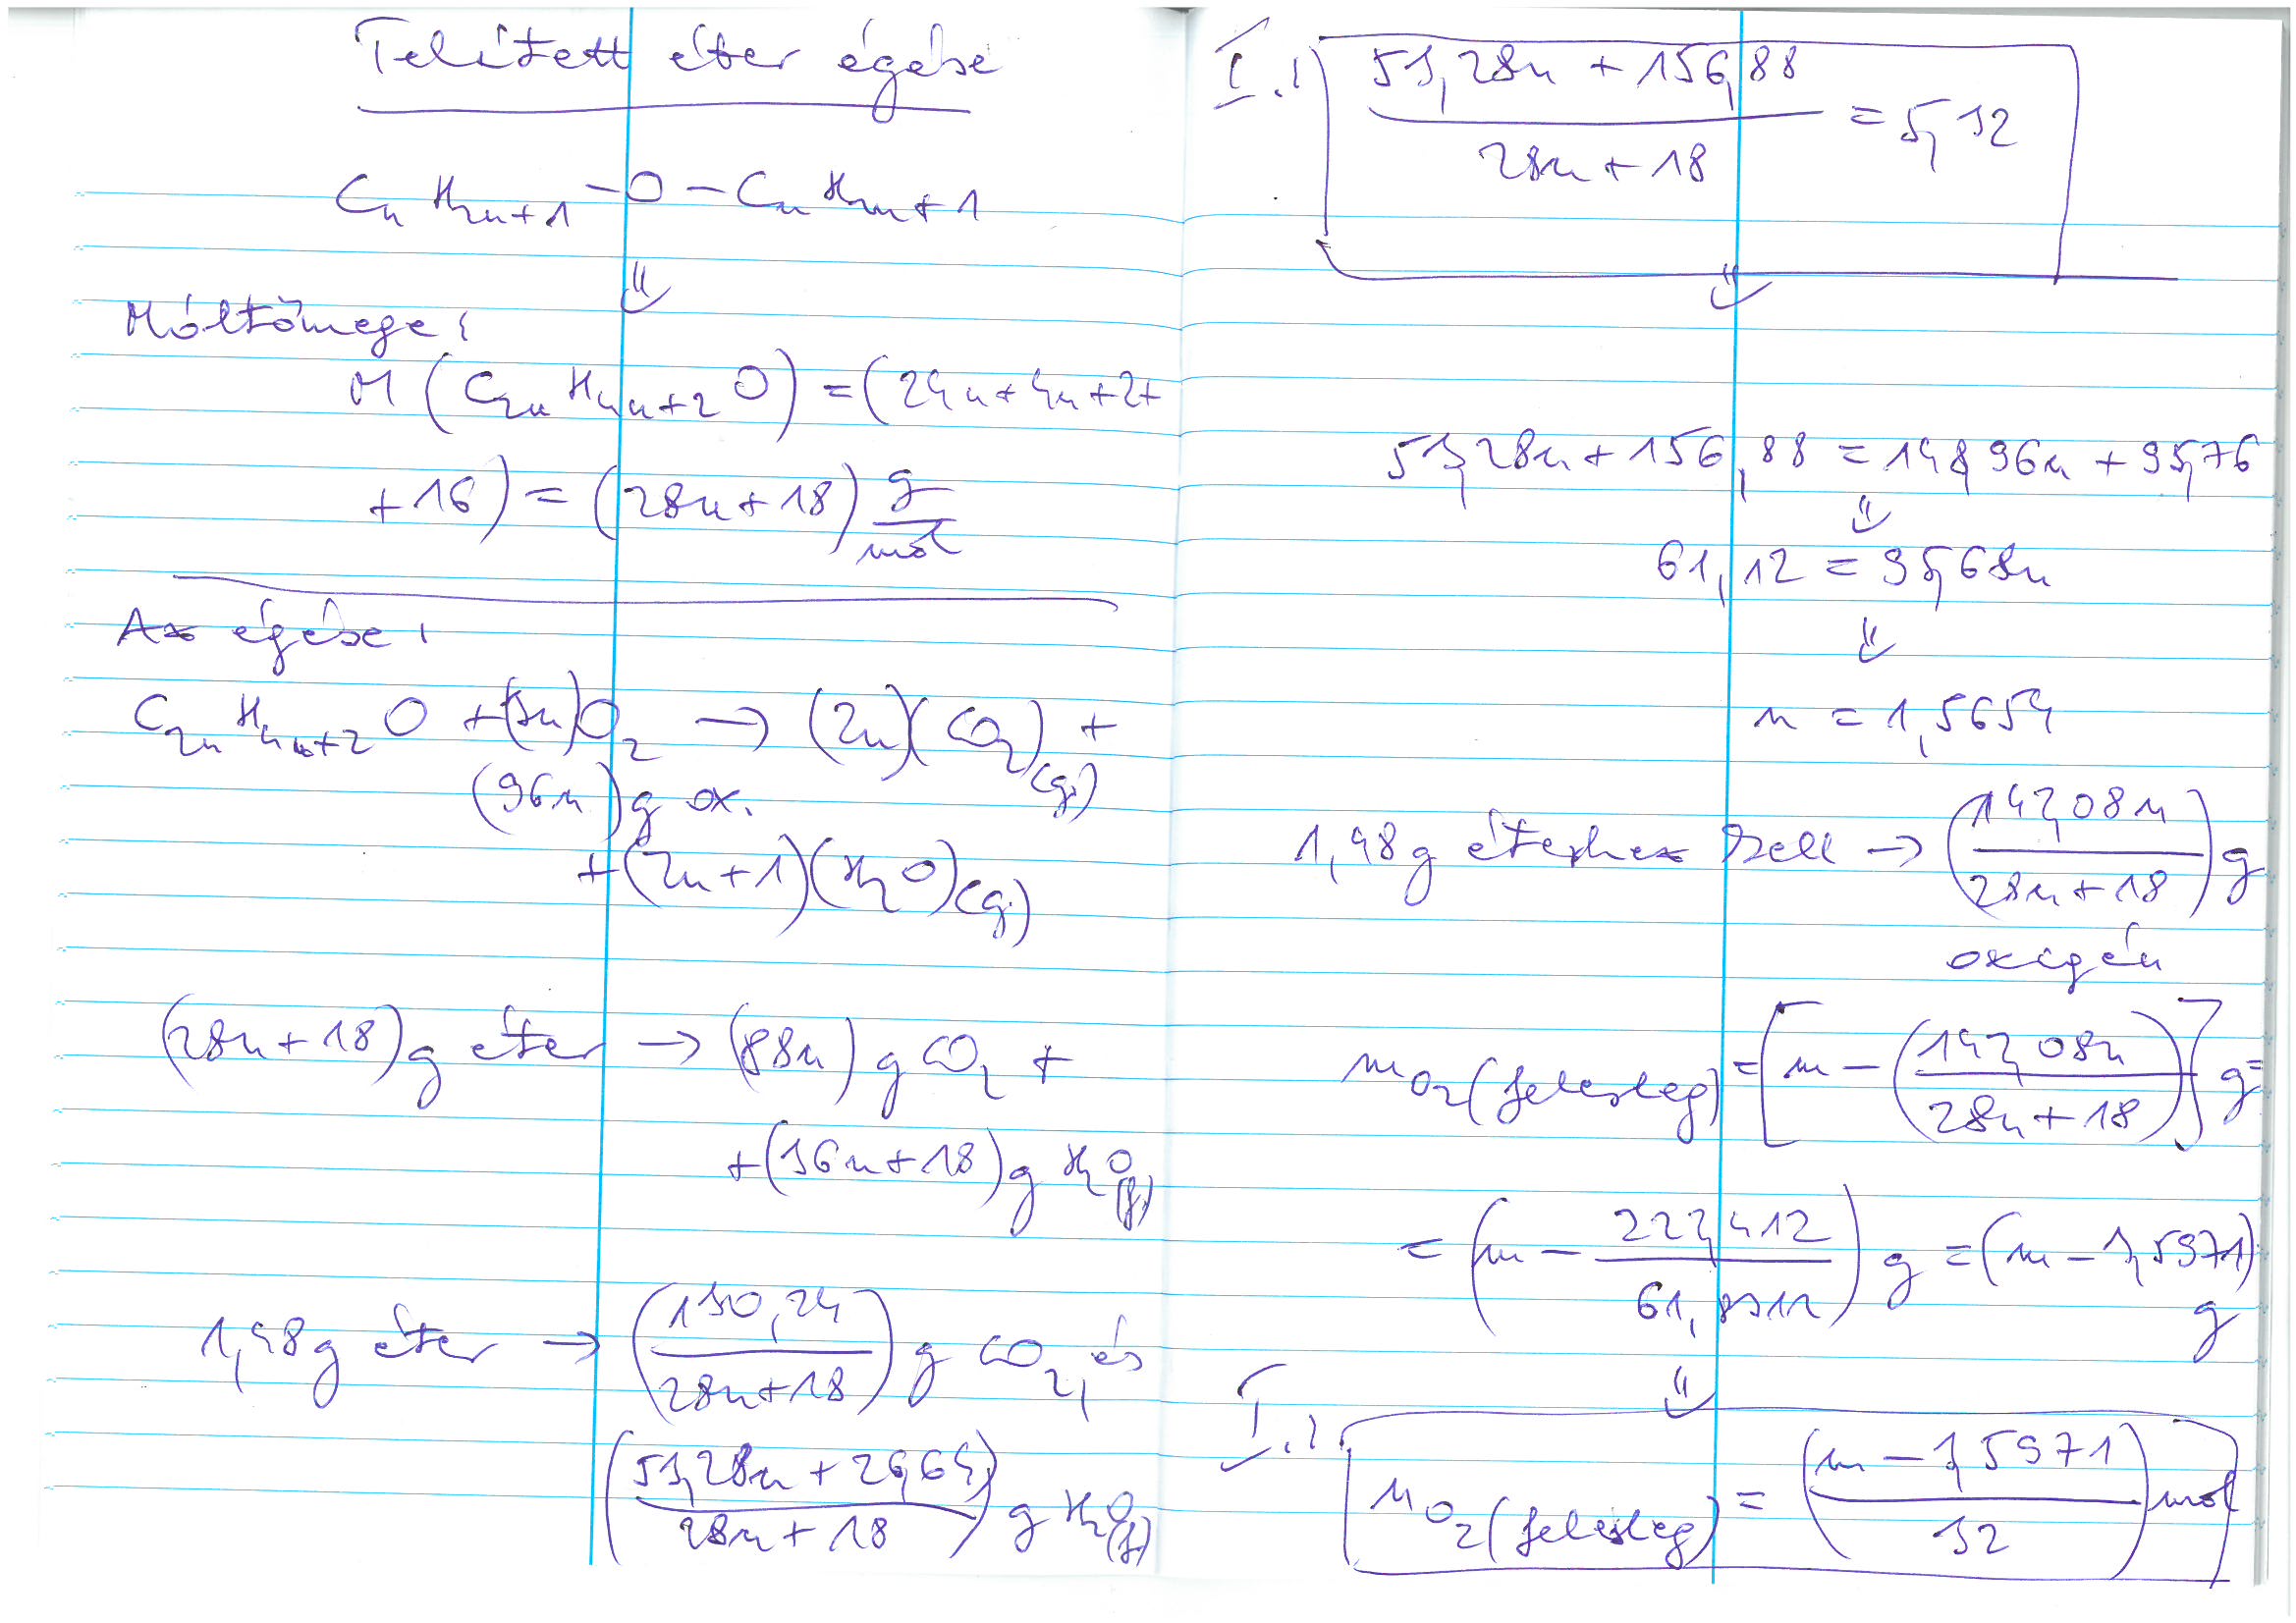 Telített éter égése
CnH2n+1 – O – CnH2n+1
⇓
Móltömege:
M (C2nH4n+2O) = (24n+4n+2+
+16) = (28n+18) g/mol
Az égése:
C2nH4n+2O + (3n)O2 → (2n)(CO2)(g) +
(96n) g ox.
+ (2n+1)(H2O)(g)
(28n+18) g éter → (88n) g CO2 +
+ (36n+18) g H2O(f)
1,48 g éter → (130,24/28n+18) g CO2, és
(53,28n + 26,64/28n+18) g H2O(f)
I.) 53,28n + 156,88/28n+18 = 5,32
⇓
53,28n + 156,88 = 148,96n + 95,76
⇓
61,12 = 95,68n
⇓
n = 1,5654
1,48 g éterhez kell → (142,08n/28n+18) g
oxigén
mO2(felesleg) = [m – (142,08n/28n+18)] g =
= (m – 222,412/61,8312) g = (m – 3,5971)
g
⇓
I.) nO2(felesleg) = (m – 3,5971/32) mol